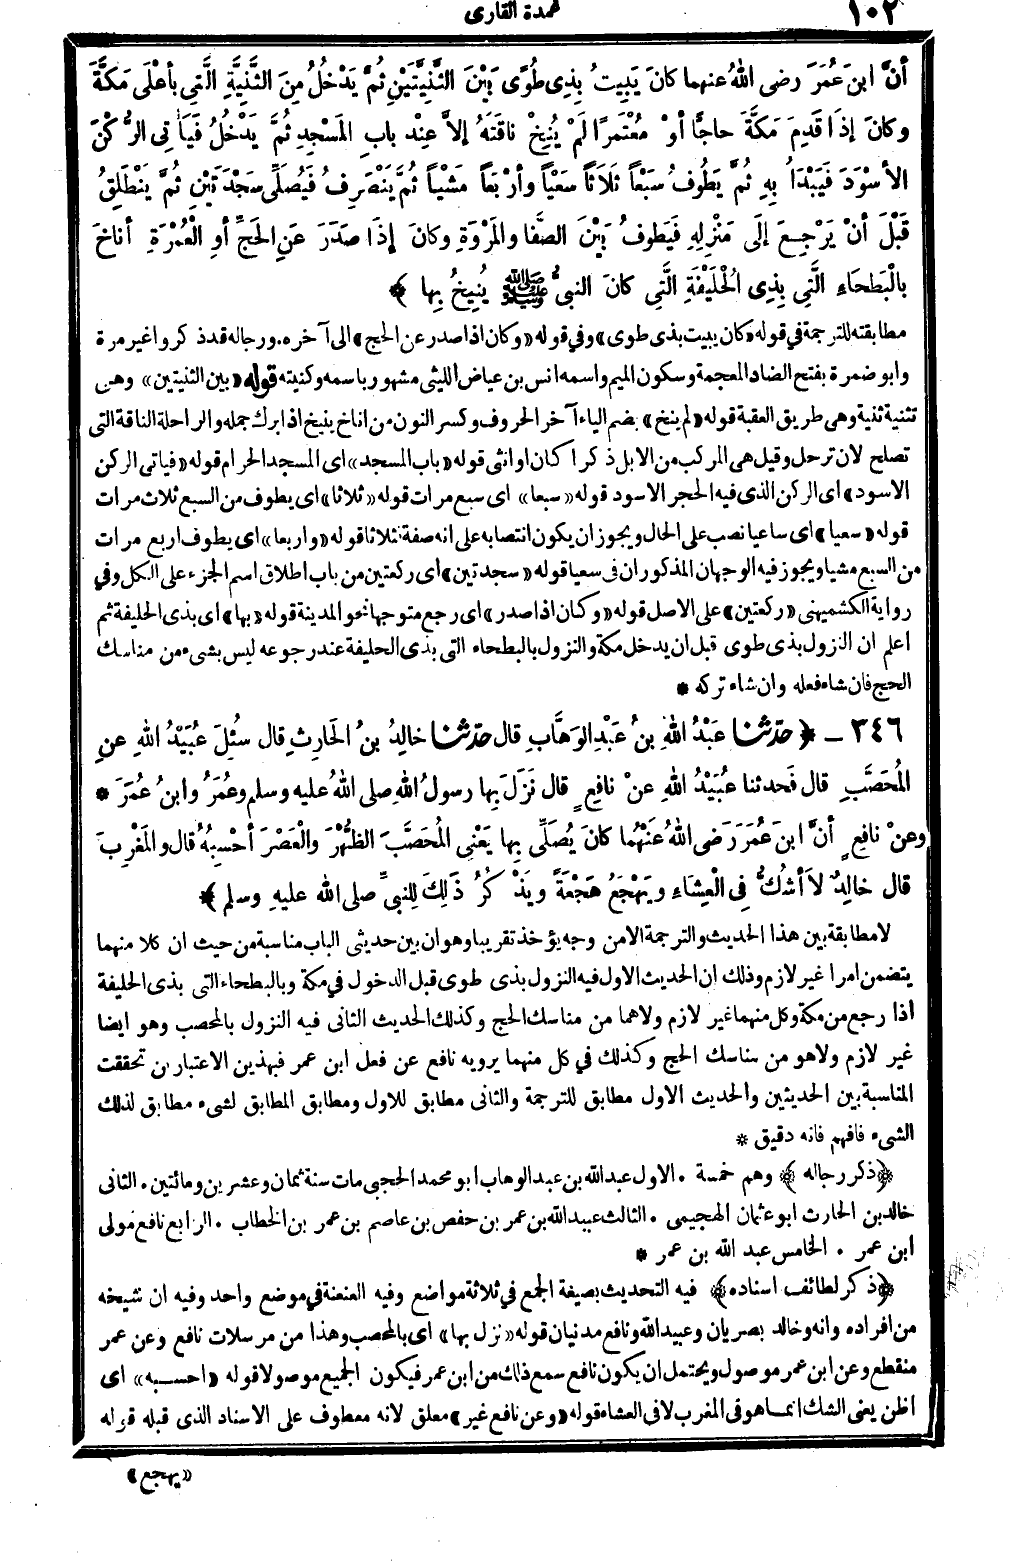 ١٠٢
عمدة القارى
أنَّ ابنَ عُمَرَ رضى اللهُ عنهما كانَ يَبِيتُ بِذِى طُوًى بَيْنَ الثَّنِيَّتَيْنِ ثُمَّ يَدْخُلُ مِنَ الثَّنِيَّةِ الَّتِي بِأعْلَى مَكَّةَ
وكانَ إذَا قَدِمَ مَكَّةَ حاجًّا أوْ مُعْتَمِرًا لَمْ يُنِخْ ناقَتَهُ إلاَّ عِنْد بابِ المَسْجِدِ ثُمَّ يَدْخُلُ فَيَأتِى الرُّكْنَ
الأسْوَدَ فَيَبْدَأُ بِهِ ثُمَّ يَطُوفُ سَبْعًا ثَلَاثاً سَعْيًا وأرْبَعاً مَشْياً ثُمَّ يَنْصَرِفُ فَيُصَلِّى سَجْدَتَيْنِ ثُمَّ يَنْطَلِقُ
قَبْلَ أنْ يَرْجِعَ إلَى مَنْزِلِهِ فَيَطُوفُ بَيْنَ الصَّفا والمَرْوَةِ وكانَ إذَا صَدَرَ عَنِ الحَجِّ أوِ الْعُمْرَةِ أناخَ
بالْبَطحَاءِ الَّتِي بِذِى الْحُلَيْفَةِ الَّتِي كانَ النبيُّ ﷺ يُنِيخُ بِها ﴾ *
مطابقته للترجمة في قوله «كان يبيت بذى طوى» وفي قوله «وكان اذا صدر عن الحج» الى آخره. ورجاله قد ذكروا غير مرة
وابو ضمرة بفتح الضاد المعجمة وسكون الميم واسمه انس بن عياض الليثى مشهور باسمه وكنيته قوله «بين الثنيتين» وهى
تثنية ثنية وهى طريق العقبة قوله «لم ينخ» بضم الياء آخر الحروف وكسر النون من اناخ ينيخ اذا برك جمله والراحلة الناقة التى
تصلح لان ترحل وقيل هى المركب من الابل ذكرا كان او انثى قوله «باب المسجد» اى المسجد الحرام قوله «فياتى الركن
الاسود» اى الركن الذى فيه الحجر الاسود قوله «سبعا» اى سبع مرات قوله «ثلاثا» اى يطوف من السبع ثلاث مرات
قوله «سعيا» اى ساعيا نصب على الحال ويجوز ان يكون انتصابه على انه صفة ثلاثا قوله «واربعا» اى يطوف اربع مرات
من السبع مشيا ويجوز فيه الوجهان المذكوران فى سعيا قوله «سجدتين» اى ركعتين من باب اطلاق اسم الجزء على الكل وفي
رواية الكشميهنى «ركعتين» على الاصل قوله «وكان اذا صدر» اى رجع متوجها نحو المدينة قوله «بها» اى بذى الحليفة ثم
اعلم ان النزول بذى طوى قبل ان يدخل مكة والنزول بالبطحاء التى بذى الحليفة عند رجوعه ليس بشىء من مناسك
الحج فان شاء فعله وان شاء تركه *
٣٤٦ ـ ﴿ حدّثنا عَبْدُ اللهِ بنُ عَبْدِ الوَهَّابِ قال حدّثنا خالِدُ بنُ الحَارِثِ قال سُئِلَ عُبَيْدُ اللهِ عنِ
المُحَصَّبِ قال فَحدثنا عُبَيْدُ اللهِ عنْ نافِعٍ قال نَزَلَ بِها رسولُ اللهِ صلى اللهُ عليه وسلم وعُمَرُ وابنُ عُمَرَ *
وعنْ نافِعٍ أنَّ ابنَ عُمَرَ رَضى اللهُ عَنْهُما كانَ يُصَلِّي بِها يَعْنِى المُحَصَّبَ الظُّهْرَ والْعَصْرَ أحْسِبُهُ قال والمَغْرِبَ
قال خالِدٌ لاَ أشُكُّ فِى الْعِشَاءِ ويَهْجَعُ هَجْعَةً ويَذْكُرُ ذَلِكَ لِلنبيِّ صلى الله عليهِ وسلم ﴾ *
لا مطابقة بين هذا الحديث والترجمة الا من وجه يؤخذ تقريبا وهو ان بين حديثى الباب مناسبة من حيث ان كلا منهما
يتضمن امرا غير لازم وذلك ان الحديث الاول فيه النزول بذى طوى قبل الدخول في مكة وبالبطحاء التى بذى الحليفة
اذا رجع من مكة وكل منهما غير لازم ولاهما من مناسك الحج وكذلك الحديث الثانى فيه النزول بالمحصب وهو ايضا
غير لازم ولاهو من مناسك الحج وكذلك في كل منهما يرويه نافع عن فعل ابن عمر فبهذين الاعتبارين تحققت
المناسبة بين الحديثين والحديث الاول مطابق للترجمة والثانى مطابق للاول ومطابق المطابق لشىء مطابق لذلك
الشىء فافهم فانه دقيق *
﴿ ذكر رجاله ﴾ وهم خمسة . الاول عبدالله بن عبدالوهاب ابو محمد الحجبى مات سنة ثمان وعشرين ومائتين . الثانى
خالد بن الحارث ابو عثمان الهجيمى . الثالث عبيد الله بن عمر بن حفص بن عاصم بن عمر بن الخطاب . الرابع نافع مولى
ابن عمر . الخامس عبد الله بن عمر *
﴿ ذكر لطائف اسناده ﴾ فيه التحديث بصيغة الجمع في ثلاثة مواضع وفيه العنعنة في موضع واحد وفيه ان شيخه
من افراده وانه وخالد بصريان وعبيد الله ونافع مدنيان قوله «نزل بها» اى بالمحصب وهذا من مرسلات نافع وعن عمر
منقطع وعن ابن عمر موصول ويحتمل ان يكون نافع سمع ذلك من ابن عمر فيكون الجميع موصولا قوله «احسبه» اى
اظن يعنى الشك انما هو فى المغرب لا فى العشاء قوله «وعن نافع غير» معلق لانه معطوف على الاسناد الذى قبله قوله
«يهجع»